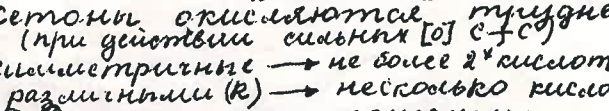 кетоны окисляются трудне
(при действии сильных [o] c+c)
симметричные → не более 2х кислот
различными (R) → несколько кисло